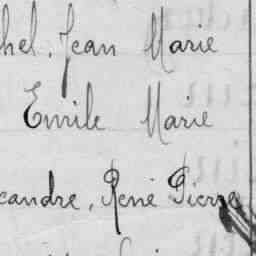 hel, Jean Marie
Emile Marie
candre, René Pierre